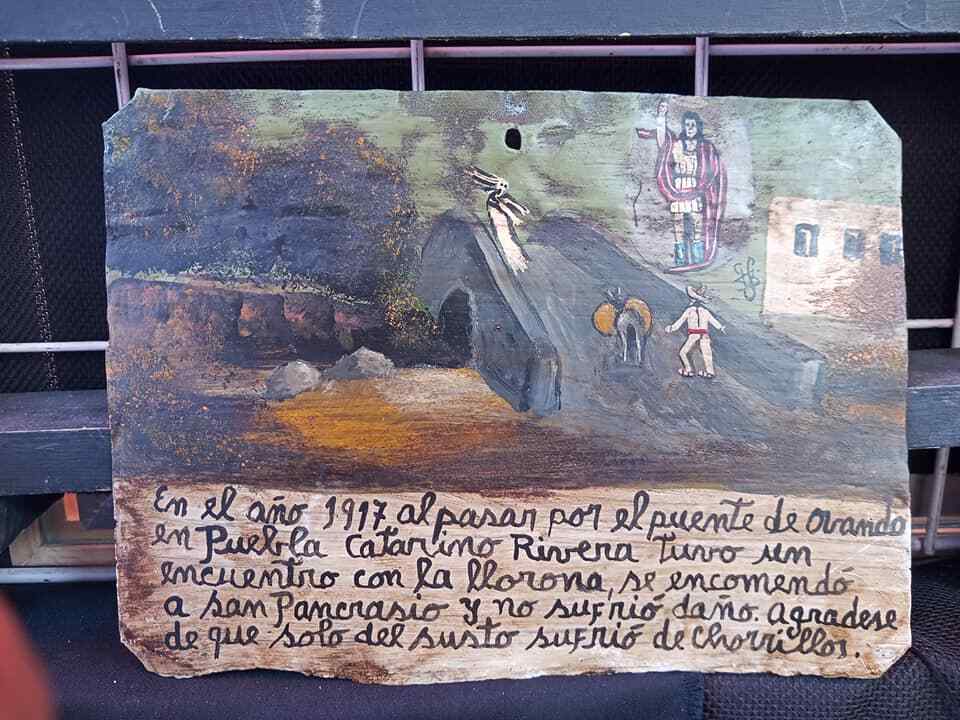 En el año 1917 al pasar por el puente de Ovando
en Puebla Catarino Rivera tuvo un
encuentro con la llorona, se encomendó
a San Pancrasio y no sufrió daño. agradese
de que solo del susto sufrió de Chorrillos.